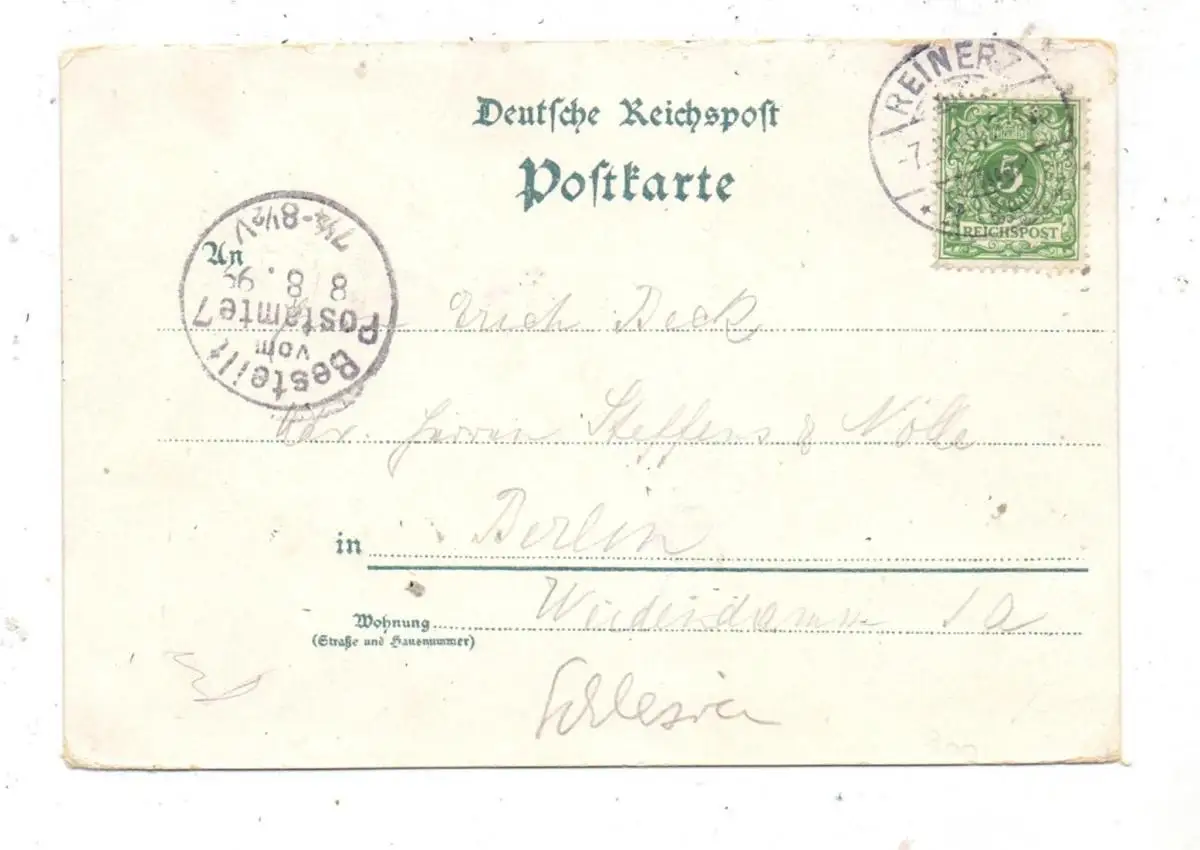 Deutsche Reichspost
Postkarte
REINERZ
-7.
5
REICHSPOST
An
Bestellt
vom
Postamte 7
8 8. 95
7¼-8½V
Erich Beck
Herren Steffens & Nölle
in Berlin
Wohnung
(Straße und Hausnummer)
1a